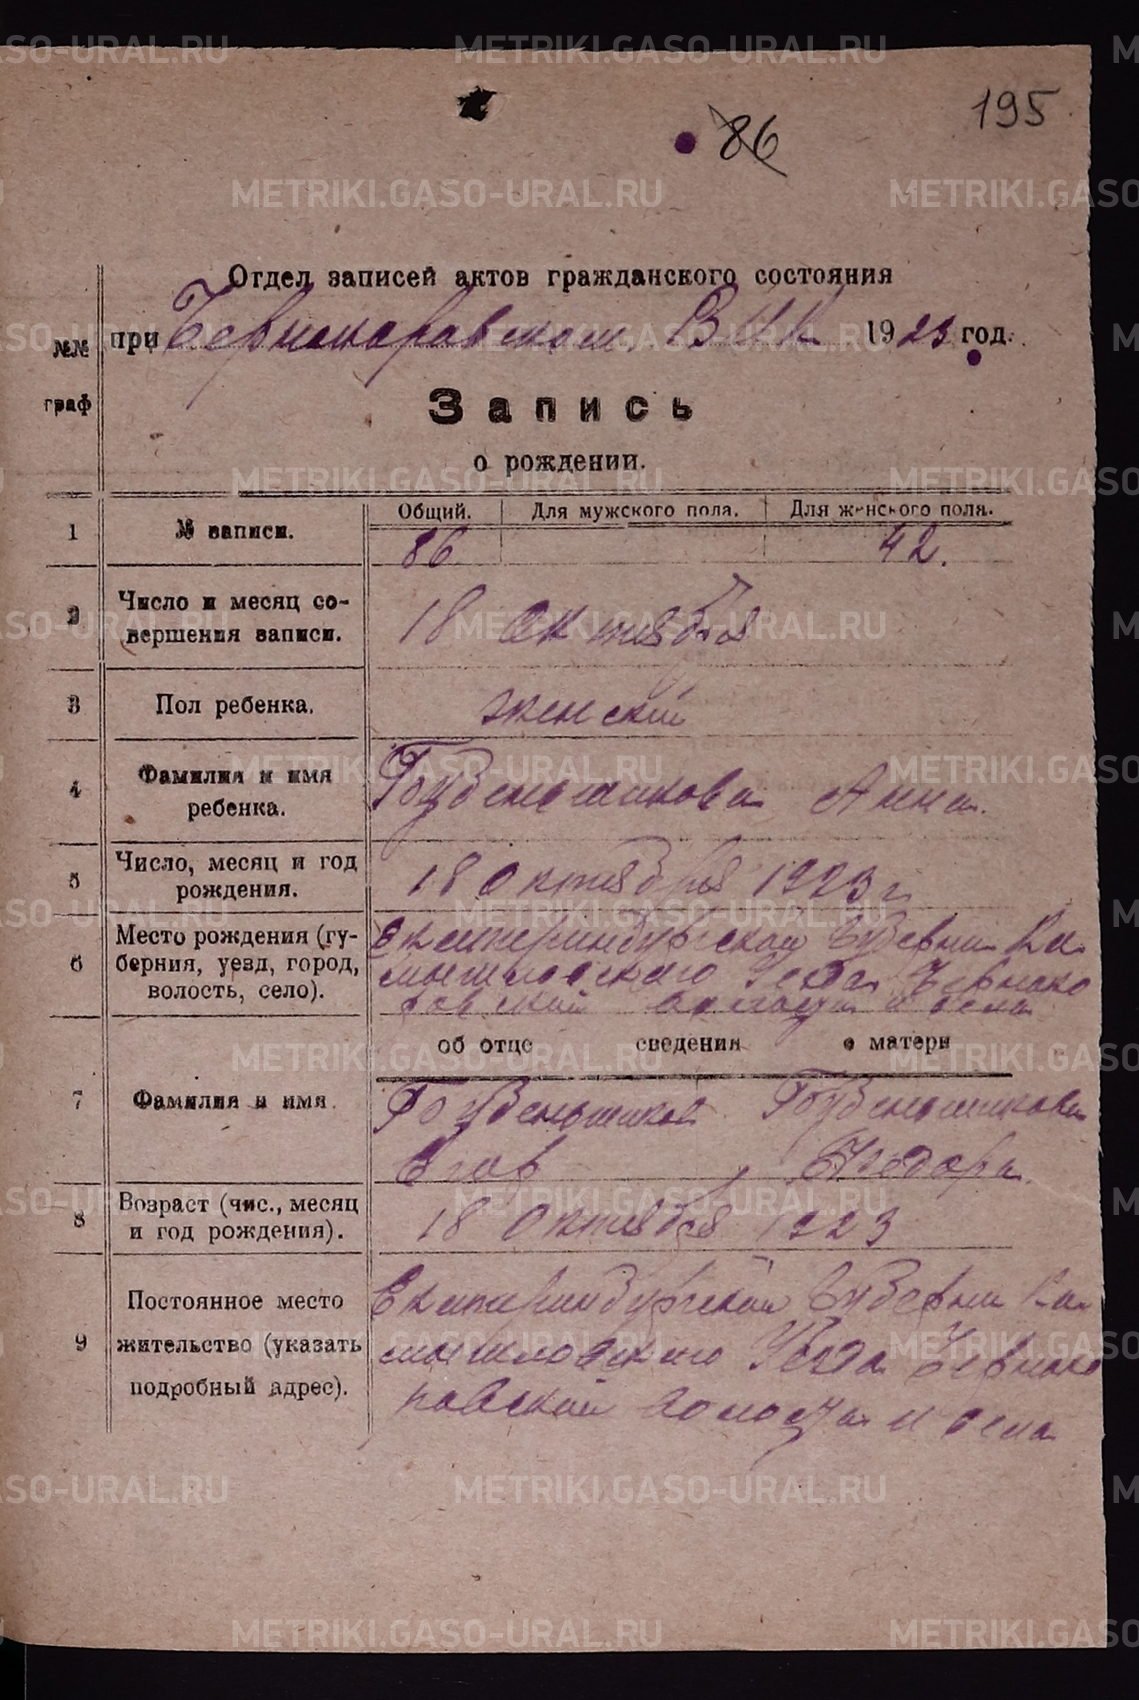 195
86
Отдел записей актов гражданского состояния
№№ при ВИК 1923 год.
граф
Запись
о рождении.
Общий. Для мужского пола. Для женского пола.
1 № записи. 86 42.
2 Число и месяц со-
вершения записи. 18 октября
3 Пол ребенка. женский
4 Фамилия и имя
ребенка. Анна.
5 Число, месяц и год
рождения. 18 октября 1923 г.
6 Место рождения (гу-
берния, уезд, город,
волость, село). Екатеринбургской Губернии Ка
мышловского Уезда
волости и села
об отце сведения о матери
7 Фамилия и имя
Егор
8 Возраст (чис., месяц
и год рождения). 18 октября 1923
9 Постоянное место
жительство (указать
подробный адрес). Екатеринбургской Губернии Ка
мышловского Уезда
волости и села
METRIKI.GASO-URAL.RU